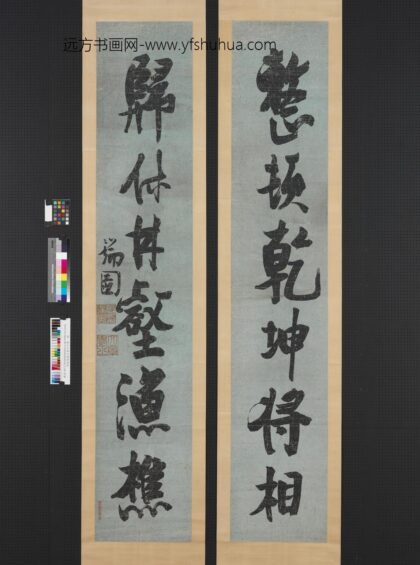 远方书画网-www.yfshuhua.com
整頓乾坤将相
歸休丘壑漁樵
瑞圖